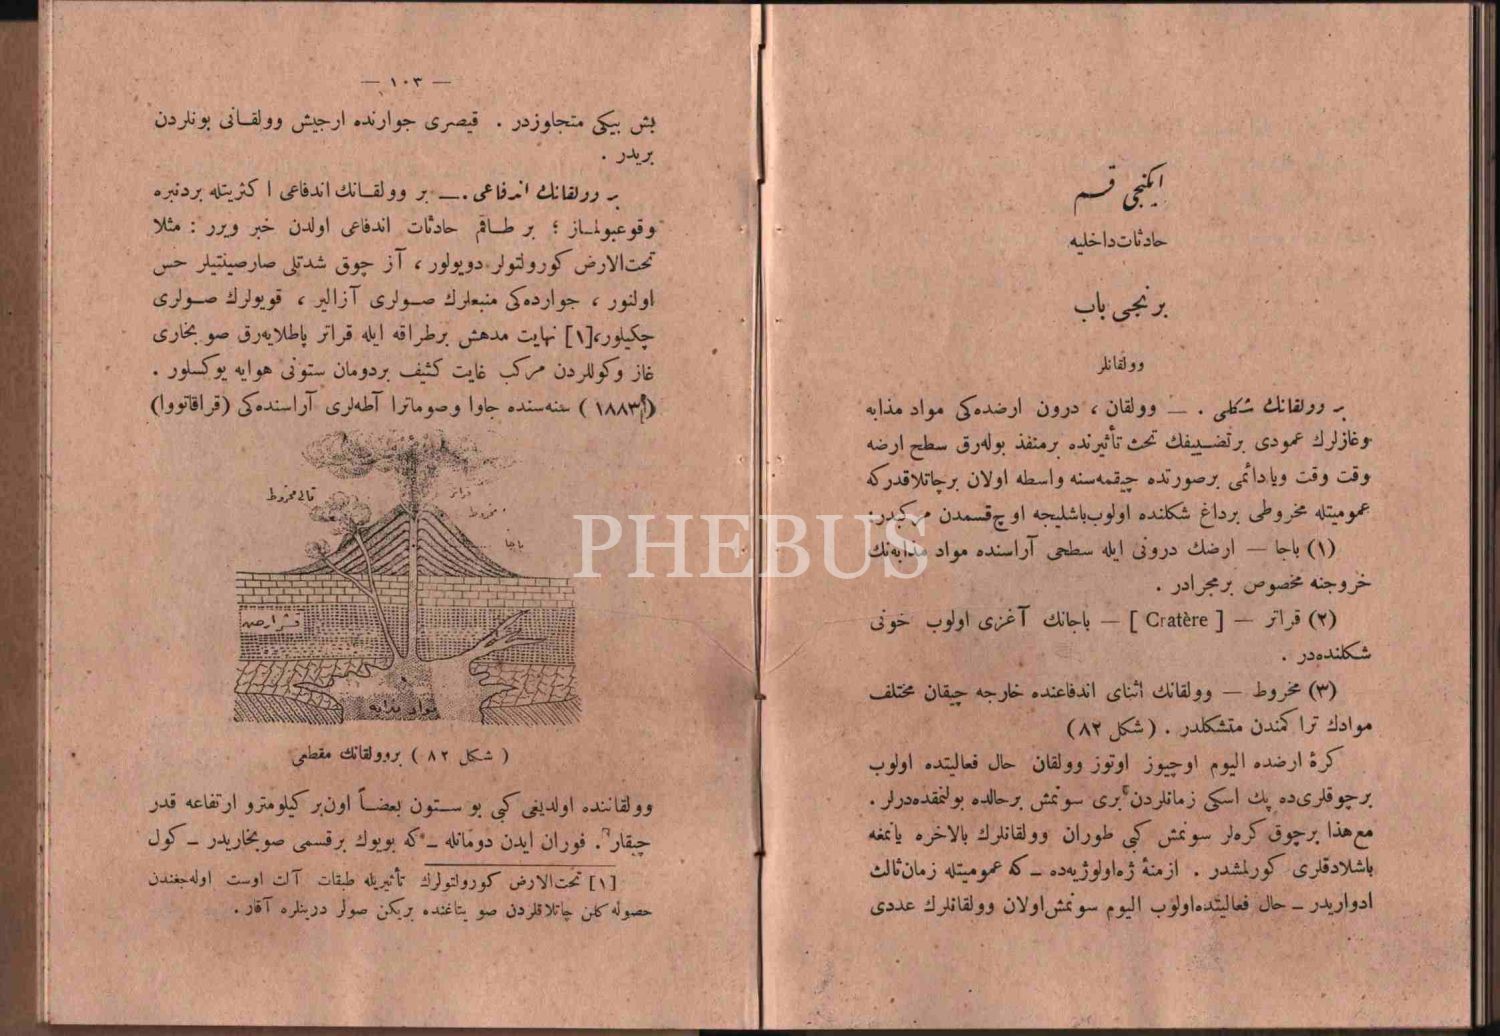 ایکنجی قسم
حادثات داخلیه
برنجی باب
وولقانلر
بر وولقانك شكلی . — وولقان ، درون ارضده‌كی مواد مذابه
وغازلرك عمودی برتضییقك تحت تأثیرنده برمنفذ بوله‌رق سطح ارضه
وقت وقت ویادائمی برصورتده چیقمه‌سنه واسطه اولان برچاتلاقدركه
عمومیتله مخروطی برداغ شكلنده اولوب‌باشلیجه اوچ‌قسمدن مركبدر:
(١) باجا — ارضك درونی ایله سطحی آراسنده مواد مذابه‌نك
خروجنه مخصوص برمجرادر .
(٢) قراتر — [ Cratère ] — باجانك آغزی اولوب خونی
شكلنده‌در .
(٣) مخروط — وولقانك اثنای اندفاعنده خارجه چیقان مختلف
موادك تراكمندن متشكلدر . (شكل ٨٢)
كرۀ ارضده الیوم اوچیوز اوتوز وولقان حال فعالیتده اولوب
برچوقلری‌ده پك اسكی زمانلردن‌بری سونمش برحالده بولنمقده‌درلر .
مع‌هذا برچوق كره‌لر سونمش كبی طوران وولقانلرك بالاخره یانمغه
باشلادقلری كورلمشدر . ازمنۀ ژه‌اولوژیه‌ده — كه عمومیتله زمان ثالث
ادواریدر — حال فعالیتده‌اولوب الیوم سونمش‌اولان وولقانلرك عددی
— ١٠٣ —
بش بیكی متجاوزدر . قیصری جوارنده ارجیش وولقانی بونلردن
بریدر .
بر وولقانك اندفاعی . — بر وولقانك اندفاعی اكثریتله بردنبره
وقوعبولماز ؛ بر طاقم حادثات اندفاعی اولدن خبر ویرر : مثلا
تحت‌الارض كورولتولر دویولور ، آز چوق شدتلی صارصینتیلر حس
اولنور ، جوارده‌كی منبعلرك صولری آزالیر ، قویولرك صولری
چكیلور،[١] نهایت مدهش برطراقه ایله قراتر پاطلایه‌رق صو بخاری
غاز وكوللردن مركب غایت كثیف بردومان ستونی هوایه یوكسلور .
(١٨٨٣) سنه‌سنده جاوا وصوماترا آطه‌لری آراسنده‌كی (قراقاتووا)
تالی مخروط
قراتر
مخروط
باجا
قشر ارض
مواد مذابه
( شكل ٨٢ ) بروولقانك مقطعی
وولقاننده اولدیغی كبی بو ستون بعضاً اون‌بر كیلومترو ارتفاعه قدر
چیقار . فوران ایدن دومانله — كه بویوك برقسمی صوبخاریدر — كول
[١] تحت‌الارض كورولتولرك تأثیریله طبقات آلت اوست اوله‌جغندن
حصوله كلن چاتلاقلردن صو یتاغنده بریكن صولر درینلره آقار .
PHEBUS